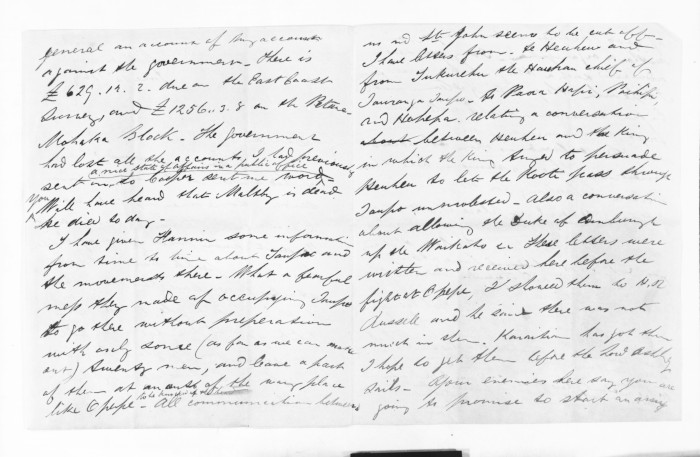 general an account of my accounts
against the government. There is
£629.12.2. due on the East Coast
Survey, and £1256.3.8 on the
Mohaka Block. The government
had lost all the accounts I had previously
a nice state of affairs in a public office
sent in, so Cooper sent me word.
You
Will have heard that Maltby is dead
he died to day.
I have given Hannin some information
from time to time about Taupo and
the movements there. What a fearful
mess they made of occupying Taupo
to go there without preparation
with only some (as far as we can make
out) Seventy men, and leave a part
of them at an out of the way place
to be surprised
like Opepe. All communication between
us and St John seems to be cut off.
I have letters from Te Heuheu and
from Tukurehu the Hauhau chief of
Tauranga Taupo. to Paora Hapi,
and Hohepa. relating a conversation
about between Heuheu and the King
in which the King tried to persuade
Heuheu to let the Kooti pass through
Taupo unmolested. Also a conversation
about allowing the Duke of Edinburgh
up the Waikato. These letters were
written and received here before the
fight at Opepe, I showed them to H. R
Russell and he said there was not
much in them. Karaitiana has got them
I hope to get them before the Lord Ashley
sails. Your enemies here say you are
going to promise to start an